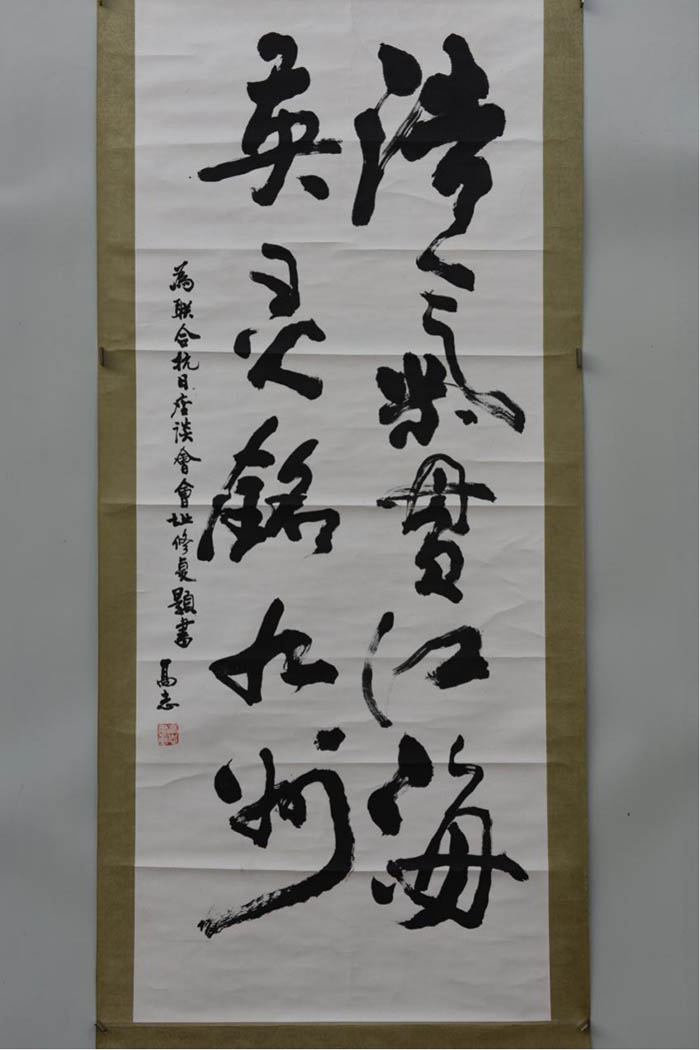 浩氣貫江海
英灵銘九州
為联合抗日座談會會址修复題書 高志